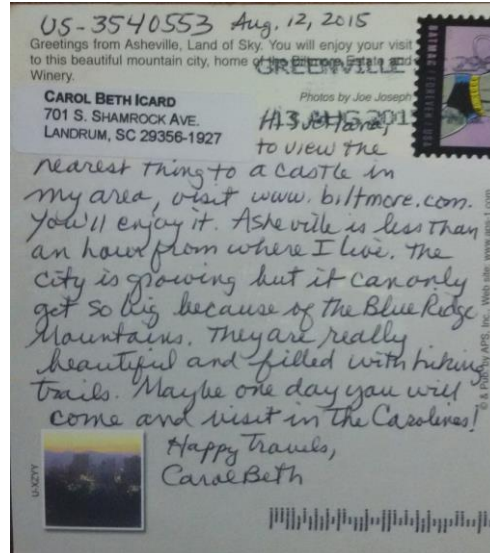 US-3540553 Aug. 12, 2015
Greetings from Asheville, Land of Sky. You will enjoy your visit
to this beautiful mountain city, home of the Biltmore Estate and
Winery.
GREENVILLE
Photos by Joe Joseph
13 AUG 2015
BATMAN / FOREVER / USA
CAROL BETH ICARD
701 S. SHAMROCK AVE.
LANDRUM, SC 29356-1927
Hi Svetlana,
to view the
nearest thing to a castle in
my area, visit www.biltmore.com.
You'll enjoy it. Asheville is less than
an hour from where I live. The
city is growing but it can only
get so big because of the Blue Ridge
Mountains. They are really
beautiful and filled with hiking
trails. Maybe one day you will
come and visit in the Carolinas!
Happy Travels,
Carol Beth
U-XZYY
© & Pub. by APS, Inc. Web site: www.aps-1.com